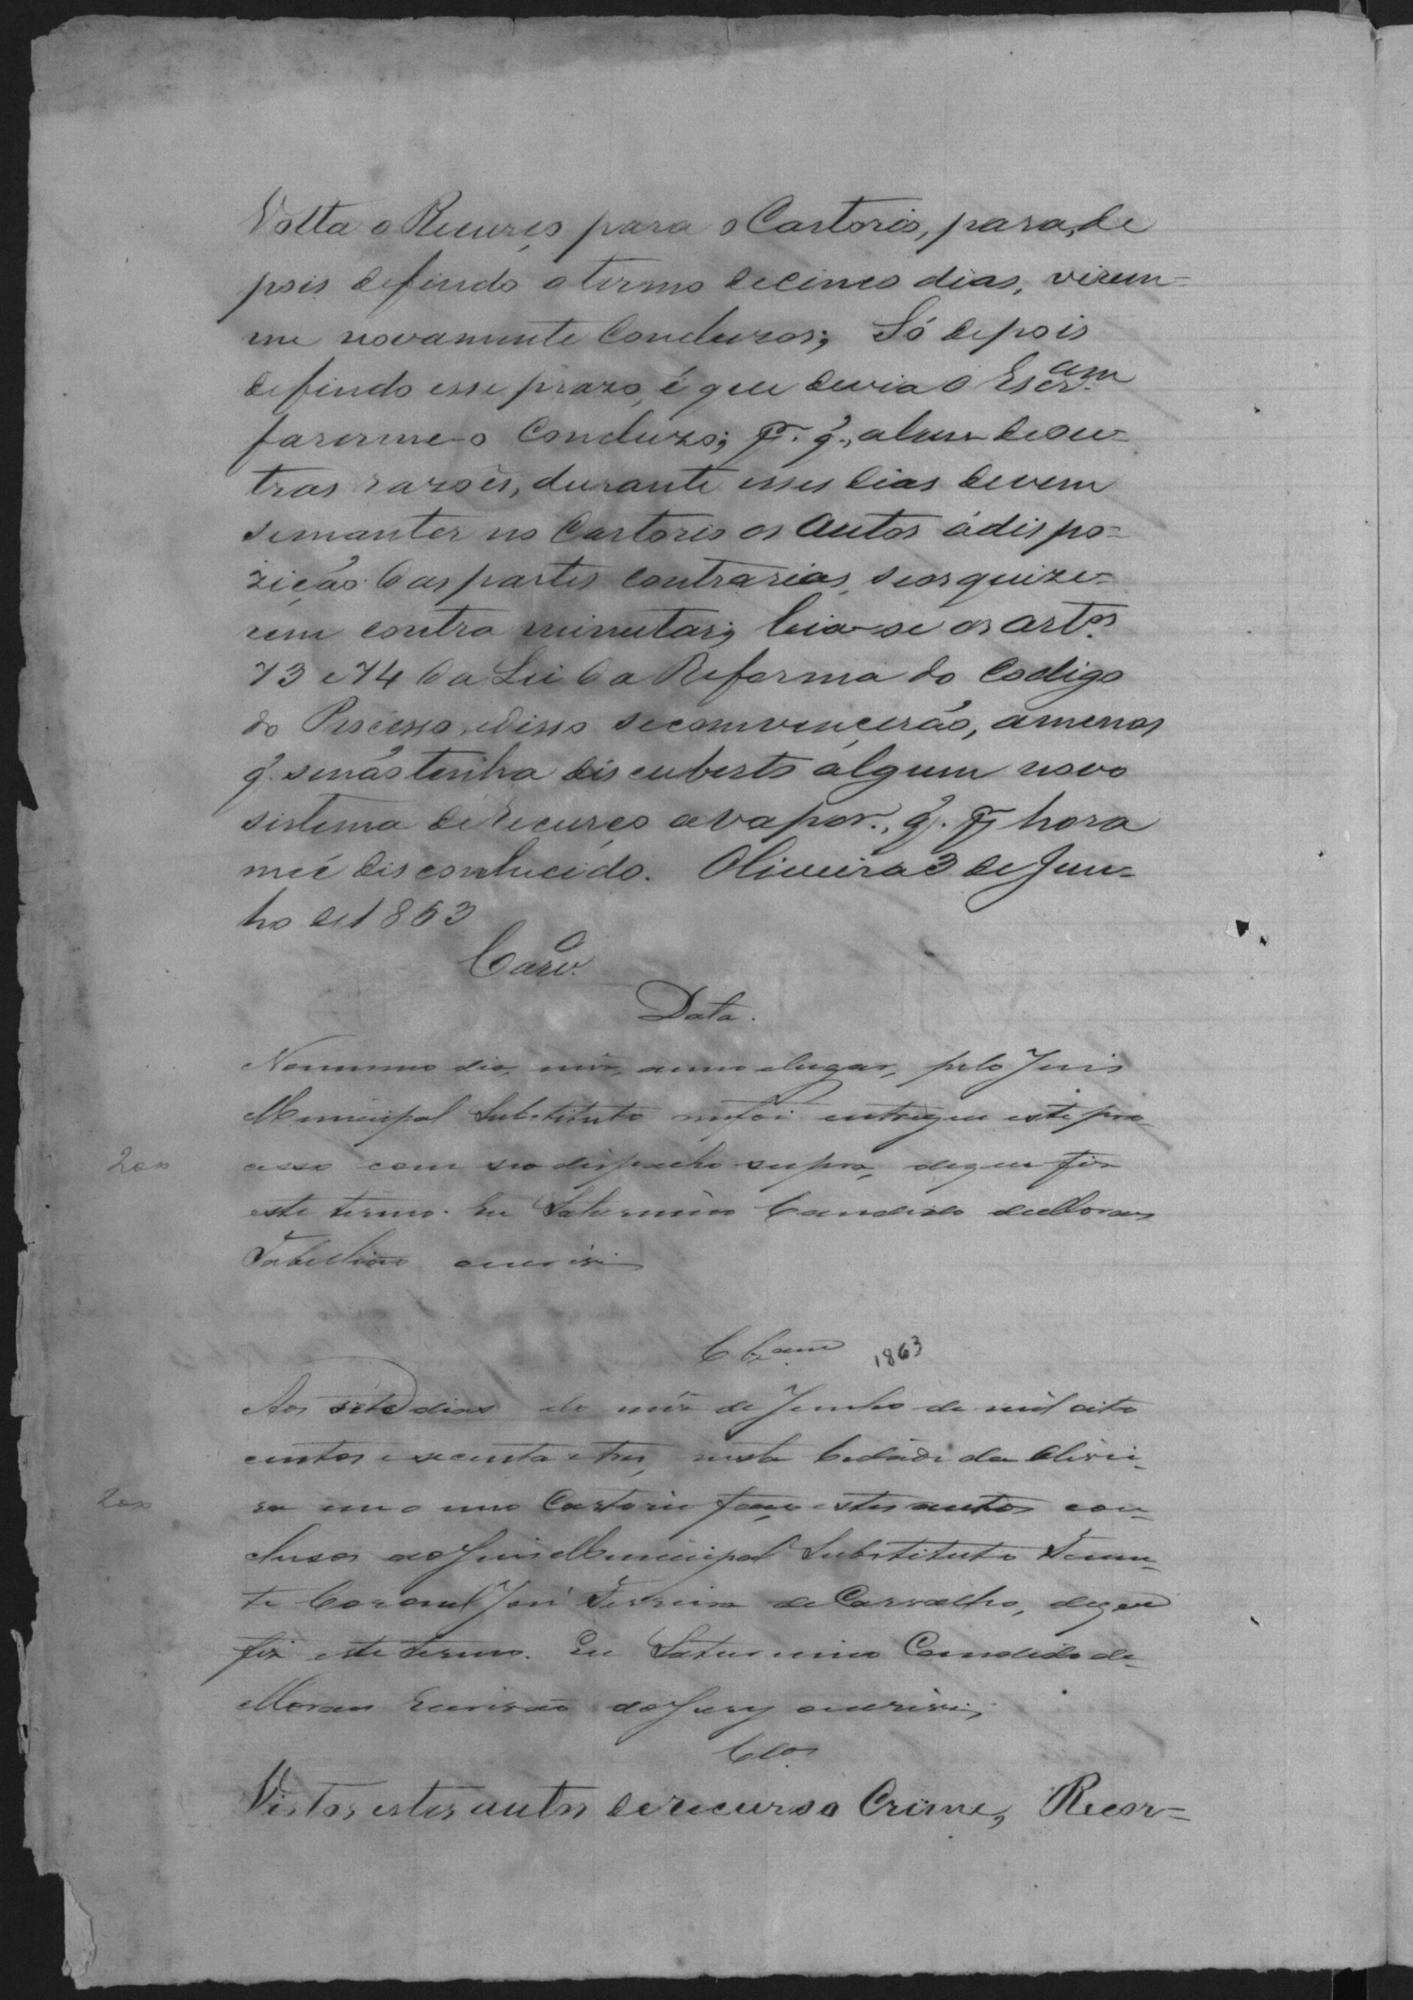 Volta o Recurço para o Cartorio, para, de
pois de findo o termo de cinco dias, virem-
me novamente concluzos; Só depois
de findo esse prazo, é que devia o Escr.am
fazerme-o Concluzo; pr. q., alem de ou-
tras razoẽs, durante esses dias devem
se manter no Cartorio os Autos á dispo-
zição das partes contrarias, se os quize-
rem contra minutar; leia-se os artos
73 e 74 da Lei da Reforma do Codigo
do Processo, e disso se convencerão, a menos
q. se não tenha discuberto algum novo
sistema de recurço a vapor., q. pr hora
me é disconhecido. Oliveira 3 de Jun-
ho de 1863
Caro.
Data.
No mesmo dia, mes, anno e lugar, pelo Juis
Municipal Substituto me foi entregue este pro-
cesso com seo dispacho supra, de que fis
este termo. Eu Saturnino Candido de Moraes
Tabelliao escrivi
200
Clzam 1863
Aos sete dias do mes de Junho de mil oito
centos e secenta e tres, nesta Cidade da Olivei-
ra em o meo Cartorio faço estes autos con-
clusos ao Juis Municipal Substituto Tenen-
te Coronel José Ferreira de Carvalho, de que
fiz este termo. Eu Saturnino Candido de
Moraes Escrivão do Jury escrivi;
200
Clos
Vistos estes autos de recurso Crime, Recor-